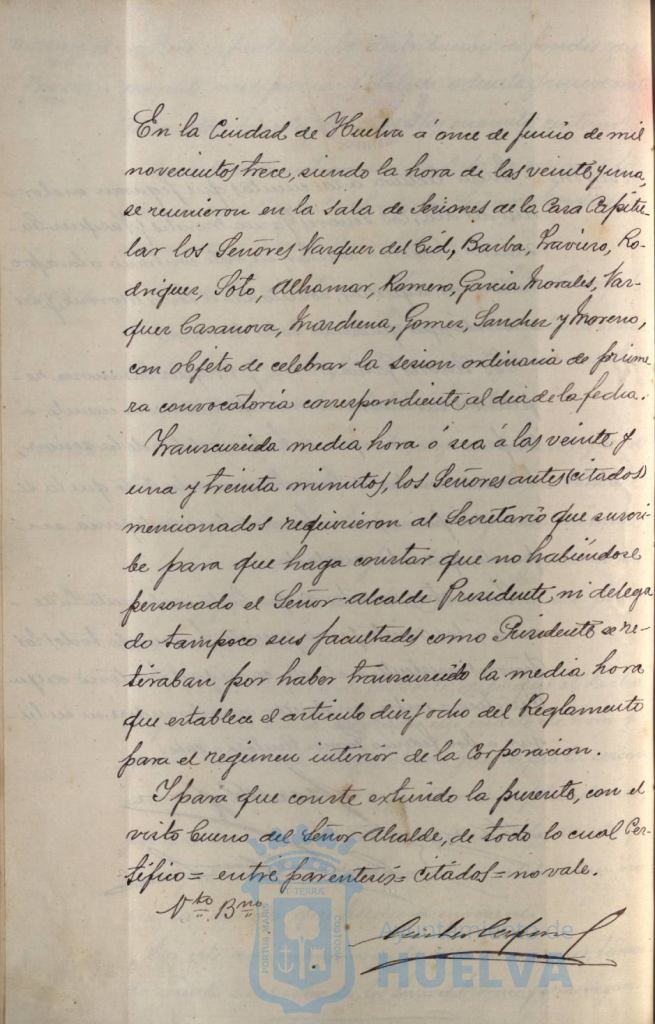 En la Ciudad de Huelva á once de Junio de mil
novecientos trece, siendo la hora de las veinte y una,
se reunieron en la sala de Sesiones de la Casa Capitu-
lar los Señores Vazquez del Cid, Barba, Traviero, Ro-
driguez, Soto, Alhamar, Romero, Garcia Morales, Vaz-
quez Casanova, Marchena, Gomez, Sanchez y Moreno,
con objeto de celebrar la sesion ordinaria de prime
ra convocatoria correspondiente al dia de la fecha.
Transcurrida media hora ó sea á las veinte y
una y treinta minutos, los Señores antes (citados)
mencionados requirieron al Secretario que suscri-
be para que haga constar que no habiéndose
personado el Señor Alcalde Presidente ni delega
do tampoco sus facultades como Presidente se re-
tiraban por haber transcurrido la media hora
que establece el articulo diez y ocho del Reglamento
para el regimen interior de la Corporacion.
Y para que conste extiendo la presente, con el
visto bueno del Señor Alcalde, de todo lo cual Cer-
tifico = entre parentesis = citados = no vale.
Vto. Bno.
Ayuntamiento de
HUELVA
PORTUS MARIS
ET TERRÆ
CUSTODIA